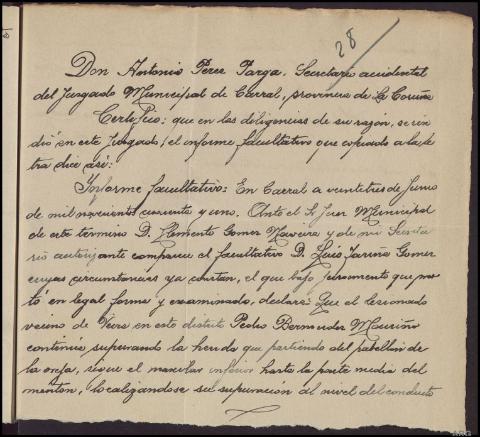 28
Don Antonio Perez Parga, Secretario accidental
del Juzgado Municipal de Carral, provincia de La Coruña
Certifico: que en las diligencias de su razón, se rin
dió en este Juzgado, el informe facultativo que copiado a la le
tra dice así:
Informe facultativo: En Carral a veintitres de Junio
de mil novecientos cuarenta y uno. Ante el Sr Juez Municipal
de este término D. Clemente Gomez y de mi Secreta
rio autorizante comparece el facultativo D. Luis Fariña Gomez
cuyas circunstancias ya constan, el que bajo juramento que pres
tó en legal forma y examinado, declara: Que el lesionado
vecino de Veira en este distrito Pedro Bermudez Mouriño
continúa supurando la herida que partiendo del pabellón de
la oreja, sigue el maxilar inferior hasta la parte media del
menton, localizandose su supuración al nivel del conducto